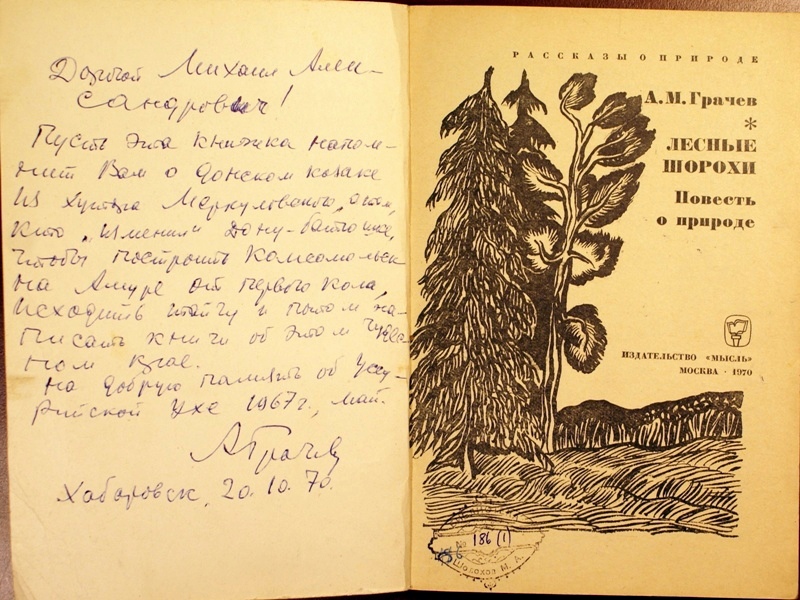 Дорогой Михаил Алек-
сандрович!
Пусть эта книжка напом-
нит Вам о донском казаке
из хутора Меркуловского, о том,
кто „изменил" Дону-батюшке,
чтобы построить Комсомольск
на Амуре от первого кола,
исходить тайгу и потом на-
писать книги об этом чудес-
ном крае.
На добрую память об Уссу-
рийской ухе 1967 г., май.
АГрачев
Хабаровск, 20.10.70.
РАССКАЗЫ О ПРИРОДЕ
А. М. Грачев
*
ЛЕСНЫЕ
ШОРОХИ
Повесть
о природе
ИЗДАТЕЛЬСТВО «МЫСЛЬ»
МОСКВА · 1970
№ 186 (1)
Шолохов М. А.